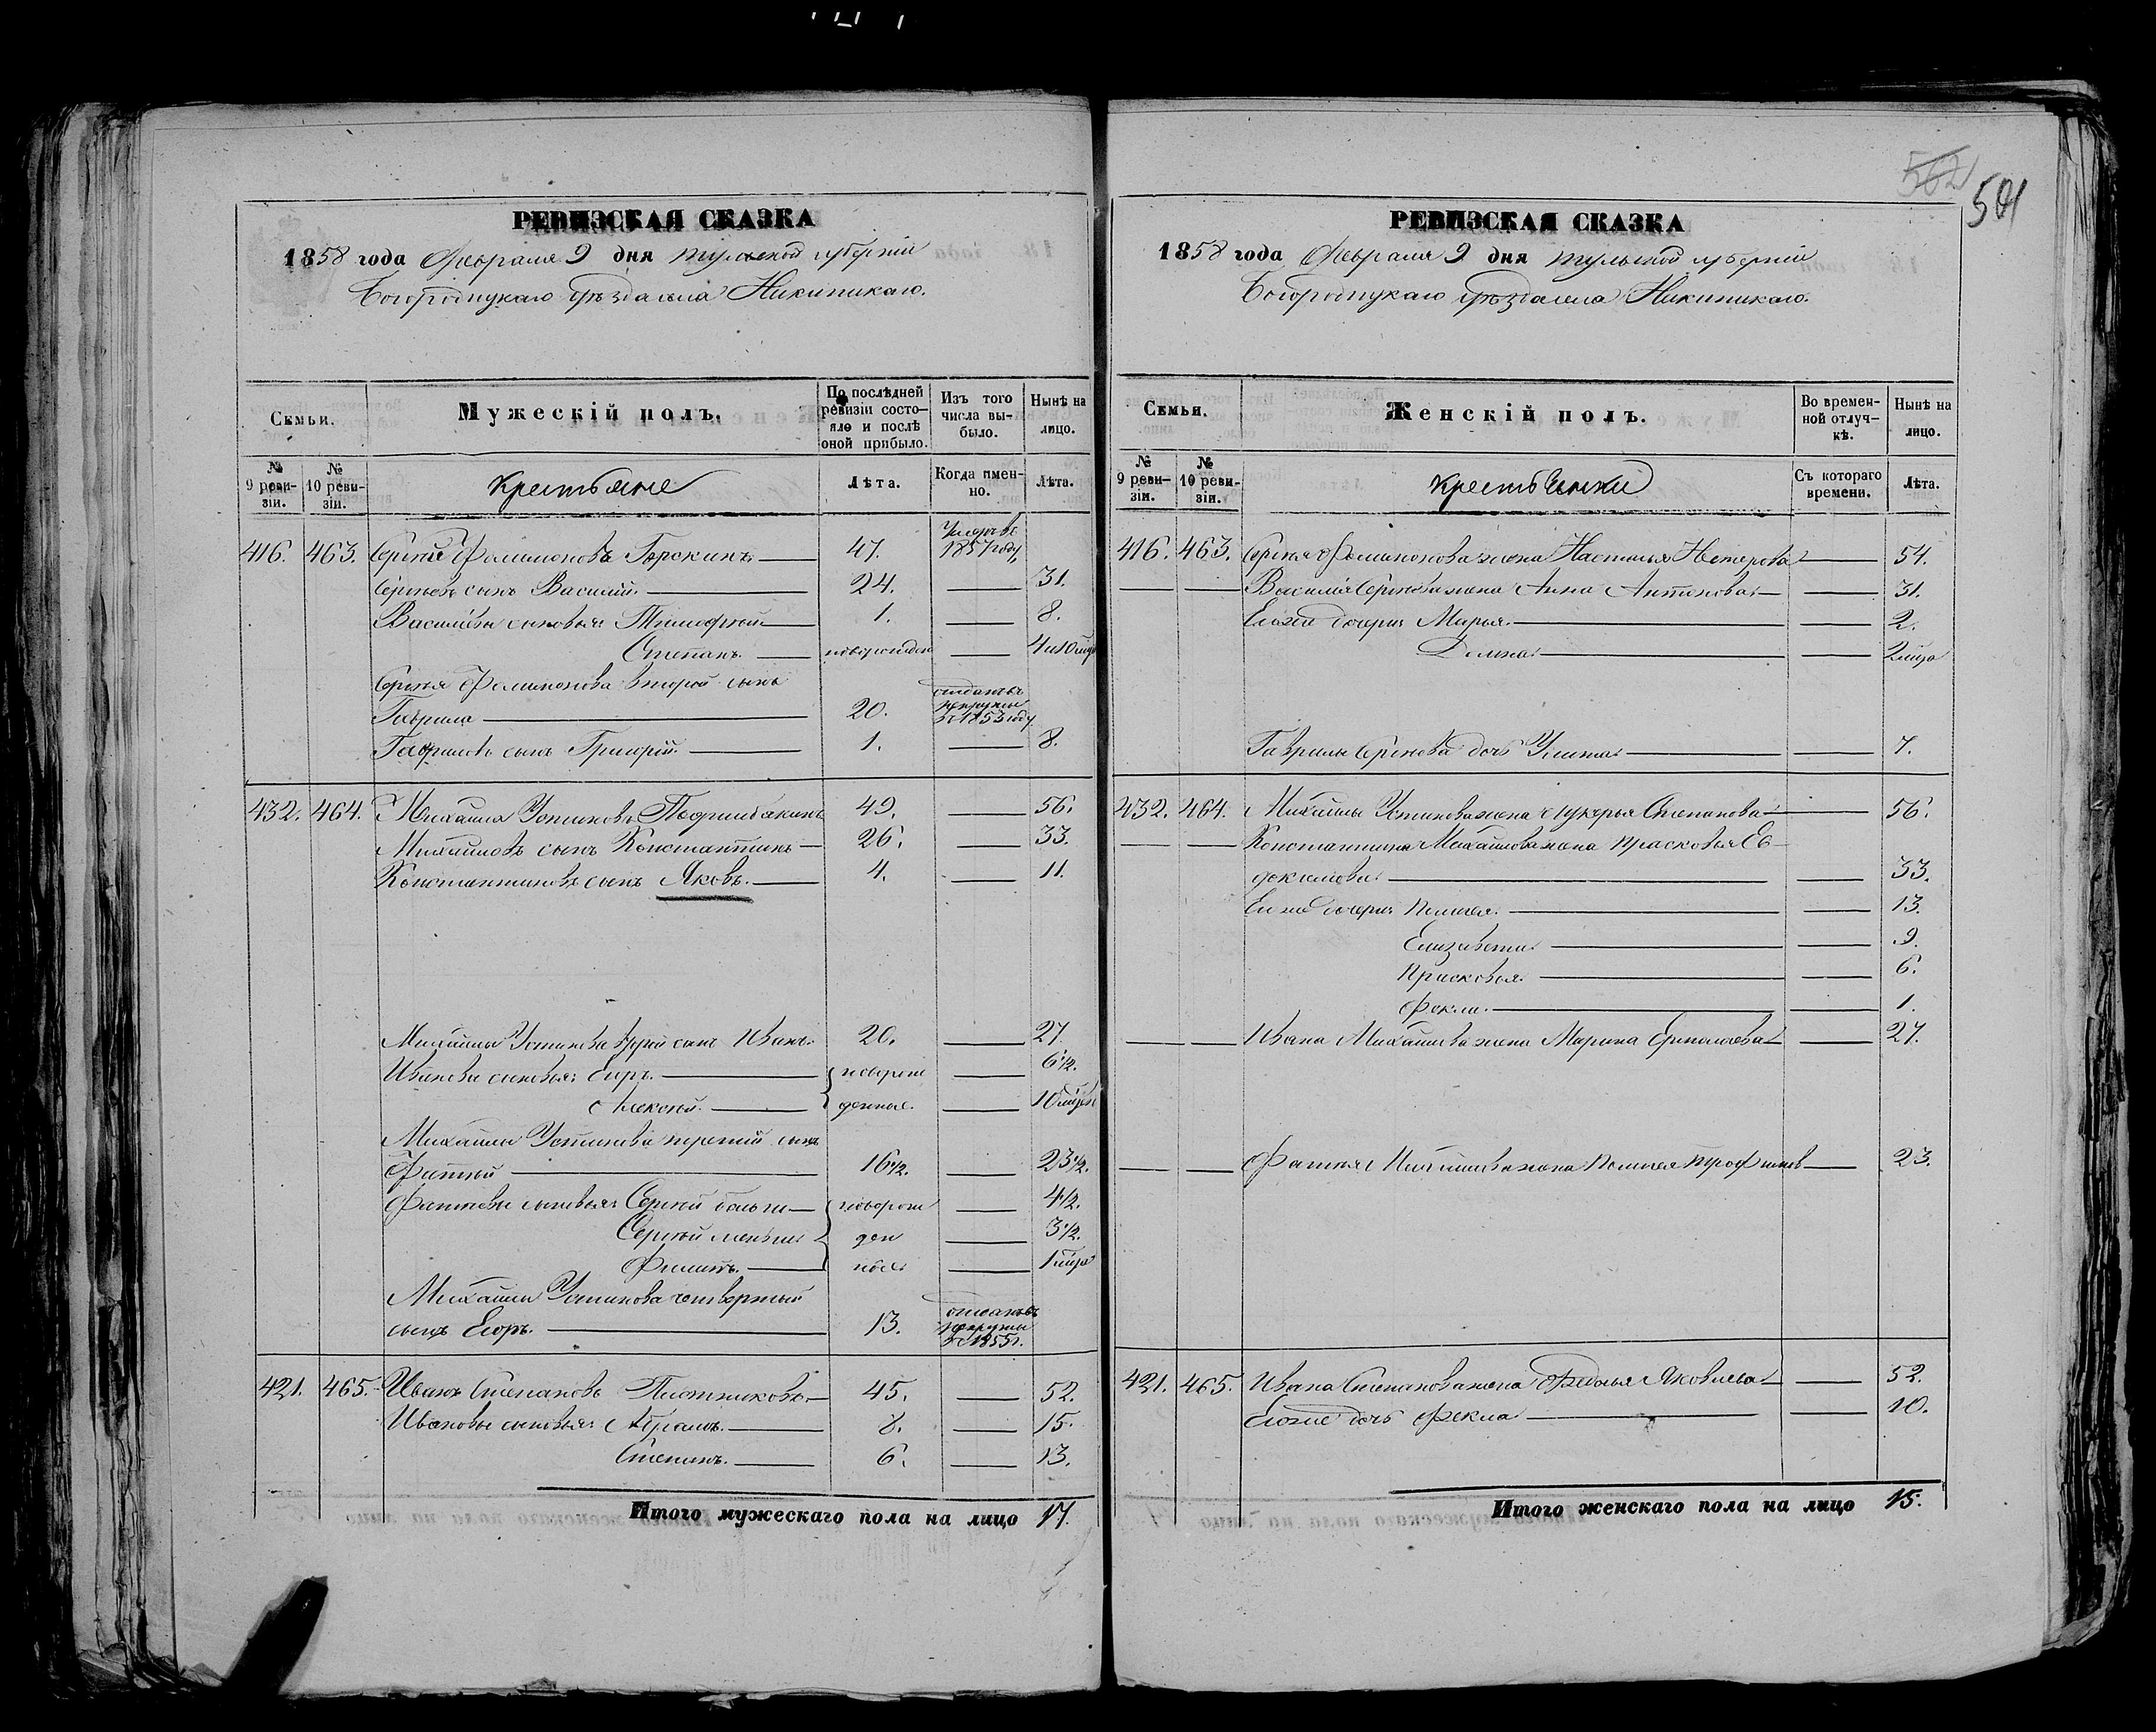 562
501
РЕВИЗСКАЯ СКАЗКА
1858 года Февраля 9 дня Тульской губернiи
Богородицкаго уѣзда села Никитскаго.
Семьи.
Мужескiй полъ.
По послѣдней ревизiи состояло и послѣ оной прибыло.
Изъ того числа выбыло.
Нынѣ на лицо.
№ 9 ревизiи.
№ 10 ревизiи.
Крестьяне
Лѣта.
Когда именно.
Лѣта.
416. 463. Сергѣй Филимоновъ 47. 1857 году
Сергѣевъ сынъ Василiй. 24. — 31.
Васильевы сыновья Тимофѣй 1. — 8.
Степанъ. новорожден — 4 и 10 мѣся
Сергѣя Филимонова второй сынъ
Гаврила 20. отданъ въ рекруты въ 1853 году
Гавриловъ сынъ Григорiй. 1. — 8.
432. 464. Михайла Устиновъ 49. — 56.
Михайловъ сынъ Константинъ 26. — 33.
Константиновъ сынъ Яковъ. 4. — 11.
Михайлы Устинова второй сынъ Иванъ. 20. — 27.
Ивановы сыновья: Егоръ. новорож — 6½.
Алексѣй. денные. — 10 мѣся
Михайлы Устинова третiй сынъ
Фатѣй 16½. — 23½.
сыновья: Сергѣй больш новорож — 4½.
Сергѣй меньш ден — 3½.
Филипъ. ные — 1 мѣся
Михайлы Устинова четвертый
сынъ Егоръ. 13. отданъ въ рекруты въ 1855 г.
421. 465. Иванъ Степановъ Плотниковъ 45. — 52.
Ивановы сыновья: Абрамъ. 8. — 15.
Степанъ. 6. — 13.
Итого мужескаго пола на лицо 17.
РЕВИЗСКАЯ СКАЗКА
1858 года Февраля 9 дня Тульской губернiи
Богородицкаго уѣзда села Никитскаго.
Семьи.
Женскiй полъ.
Во временной отлучкѣ.
Нынѣ на лицо.
№ 9 ревизiи.
№ 10 ревизiи.
Крестьянки
Съ котораго времени.
Лѣта.
416. 463. Сергѣя Филимонова жена Настасья — 54.
— — Василiя Сергѣева жена Анна Антонова — 31.
Его же дочери Марья. — 2.
Домна — 2 мѣся
Гаврилы Сергѣева дочь Улита — 7.
432. 464. Михайлы Устинова жена Лукерья Степанова — 56.
— — Константина Михайлова жена Прасковья Ев-
докимова — 33.
Его же дочери Пелагея. — 13.
Елизавета — 9.
Прасковья. — 6.
Фекла. — 1.
— — Ивана Михайлова жена Марина Ермолаева — 27.
— — Фатѣя Михайлова жена Пелагея Трофимов — 23.
421. 465. Ивана Степанова жена Федосья Яковлева — 52.
Его же дочь Фекла — 10.
Итого женскаго пола на лицо 15.